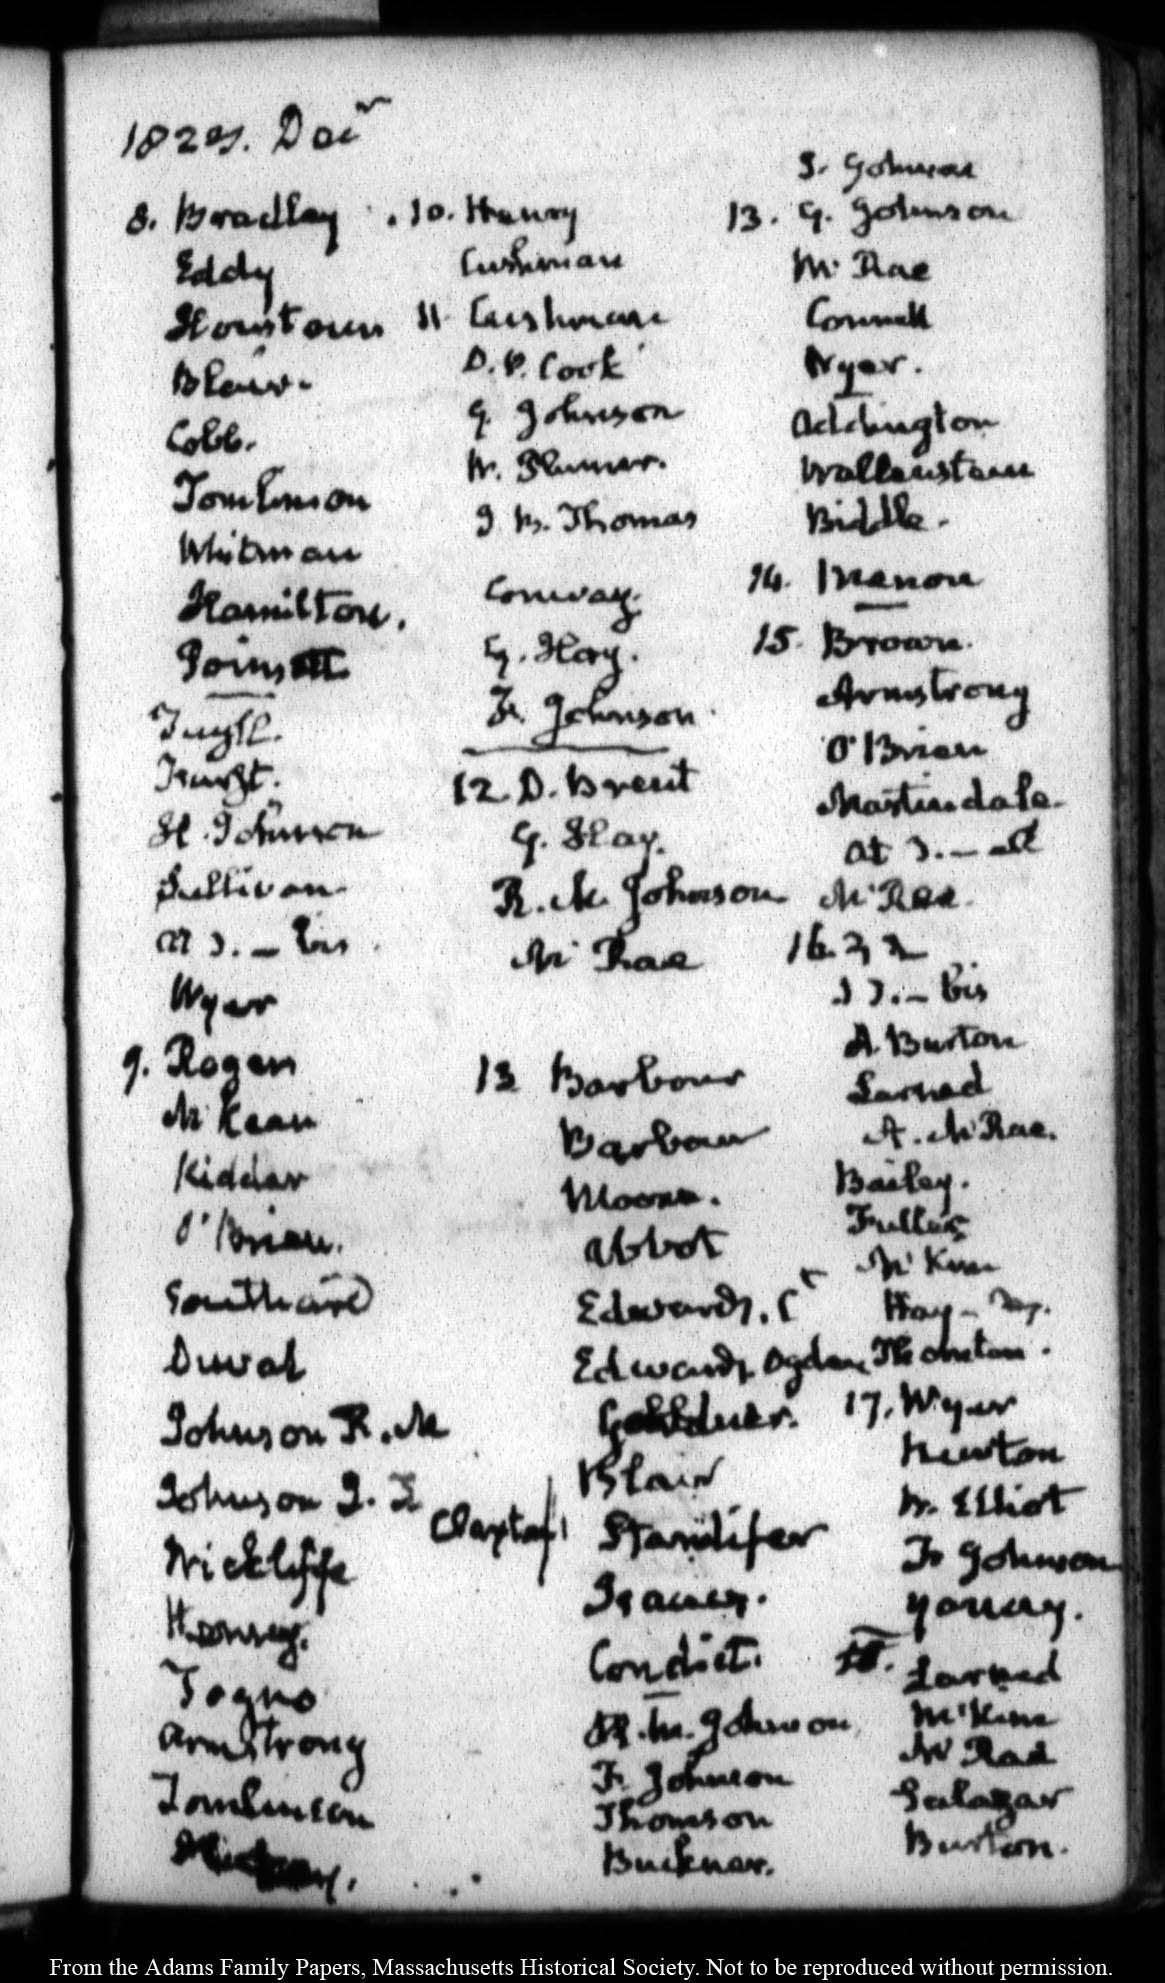 8. Bradley
Eddy
Houstoun
Blair.
Cobb.
Tomlinson
Whitman
Hamilton.
Poinsett
Tuyll.
H. Johnson
Sullivan.
bis
Wyer
9. Rogers
McKean
Kidder
O'Brien.
Southard
Duval
Johnson R. M
Johnson J. T
Wickliffe
Henry.
Togno
Armstrong
Tomlinson
10. Henry
Cushman
11 Cushman
D. P. Cook
G. Johnson
W. Plumer.
J B. Thomas
Conway.
G. Hay.
F. Johnson.
12. D. Brent
G. Hay.
R. M. Johnson
Mc Rae
13 Barbour
Barbour
Moore.
Abbot
Edwards.
Edwards Ogden
Blair
Claxton
Standifer
Isacks.
Condict.
R. M. Johnson
F. Johnson
Thomson
Bucknor.
J. Johnson
13. G. Johnson
Mc Rae
Connell
Wyer.
Addington
Wallenstein
Biddle.
14.
15. Brown.
Armstrong
O'Brien
Martindale.
McRae.
16.
bis
A. Burton
Larned
A. McRae.
Bailey.
Fuller
McKim
Hay
Thornton.
17. Wyer
Newton
W. Elliot
F. Johnson
Yancey.
Larned
McKim
McRae
Salazar
Burton.
From the Adams Family Papers, Massachusetts Historical Society. Not to be reproduced without permission.